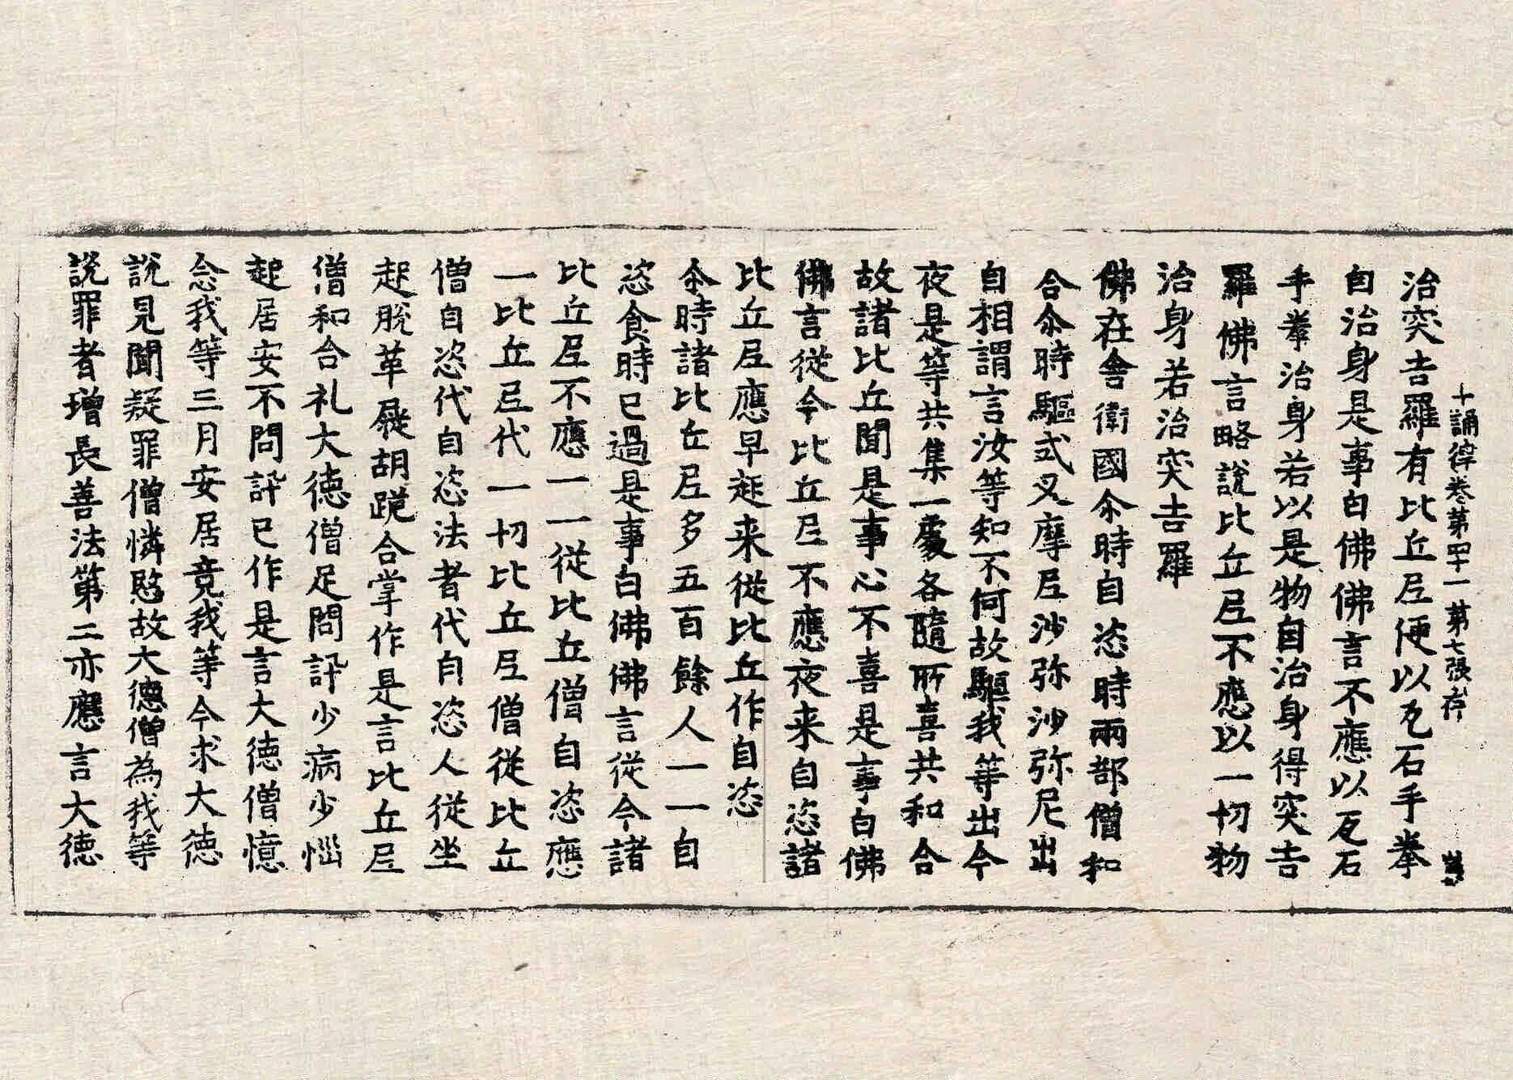 十誦律卷第四十一 第七張 存
治突吉羅有比丘尼便以瓦石手拳
自治身是事白佛佛言不應以瓦石
手拳治身若以是物自治身得突吉
羅佛言略說比丘尼不應以一切物
治身若治突吉羅
佛在舍衛國尒時自恣時兩部僧和
合尒時驅式叉摩尼沙弥沙弥尼出
自相謂言汝等知不何故驅我等出今
夜是等共集一處各隨所喜共和合
故諸比丘聞是事心不喜是事白佛
佛言從今比丘尼不應夜来自恣諸
比丘尼應早起来從比丘作自恣
尒時諸比丘尼多五百餘人一一自
恣食時已過是事白佛佛言從今諸
比丘尼不應一一從比丘僧自恣應
一比丘尼代一切比丘尼僧從比丘
僧自恣代自恣法者代自恣人從坐
起脫革屣胡跪合掌作是言比丘尼
僧和合礼大德僧足問訊少病少惱
起居安不問訊已作是言大德僧憶
念我等三月安居竟我等今求大德
說見聞疑罪僧憐愍故大德僧為我等
說罪者增長善法第二亦應言大德